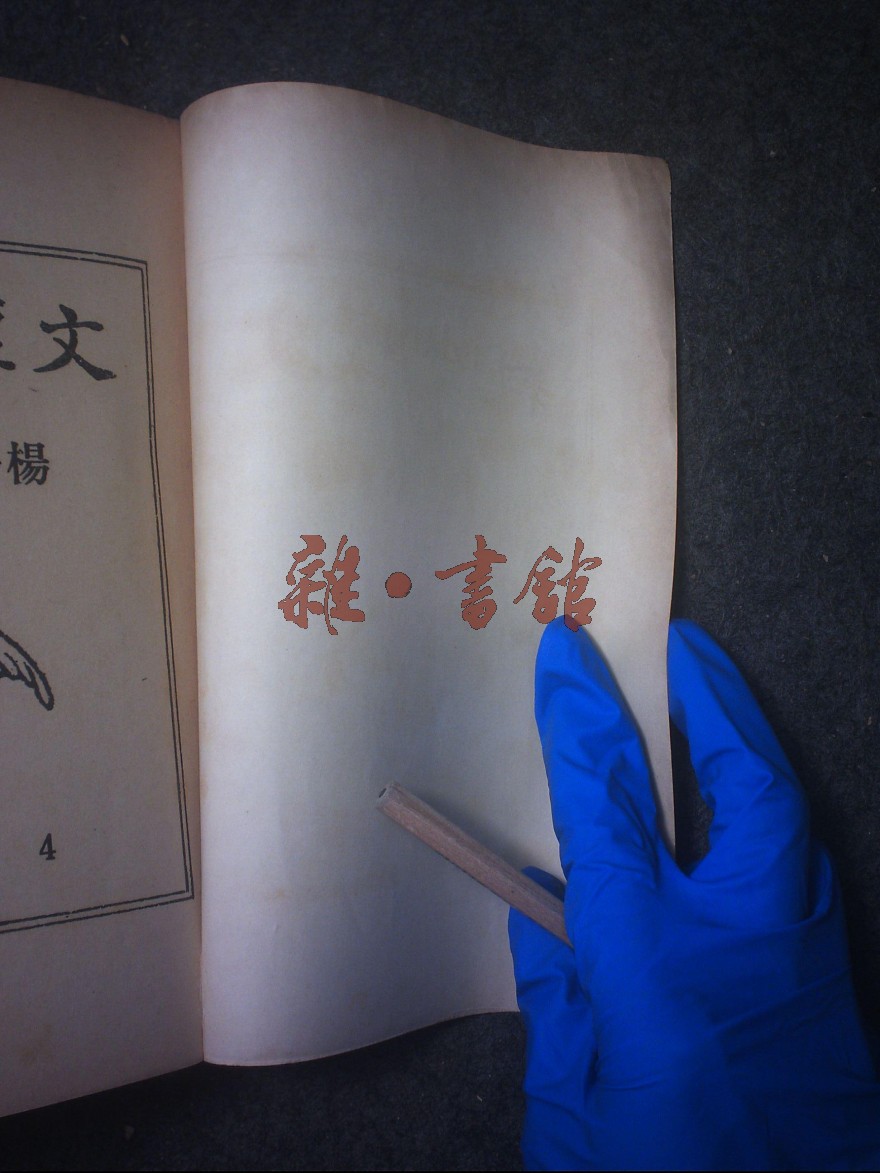 文
楊
4
雜·書館